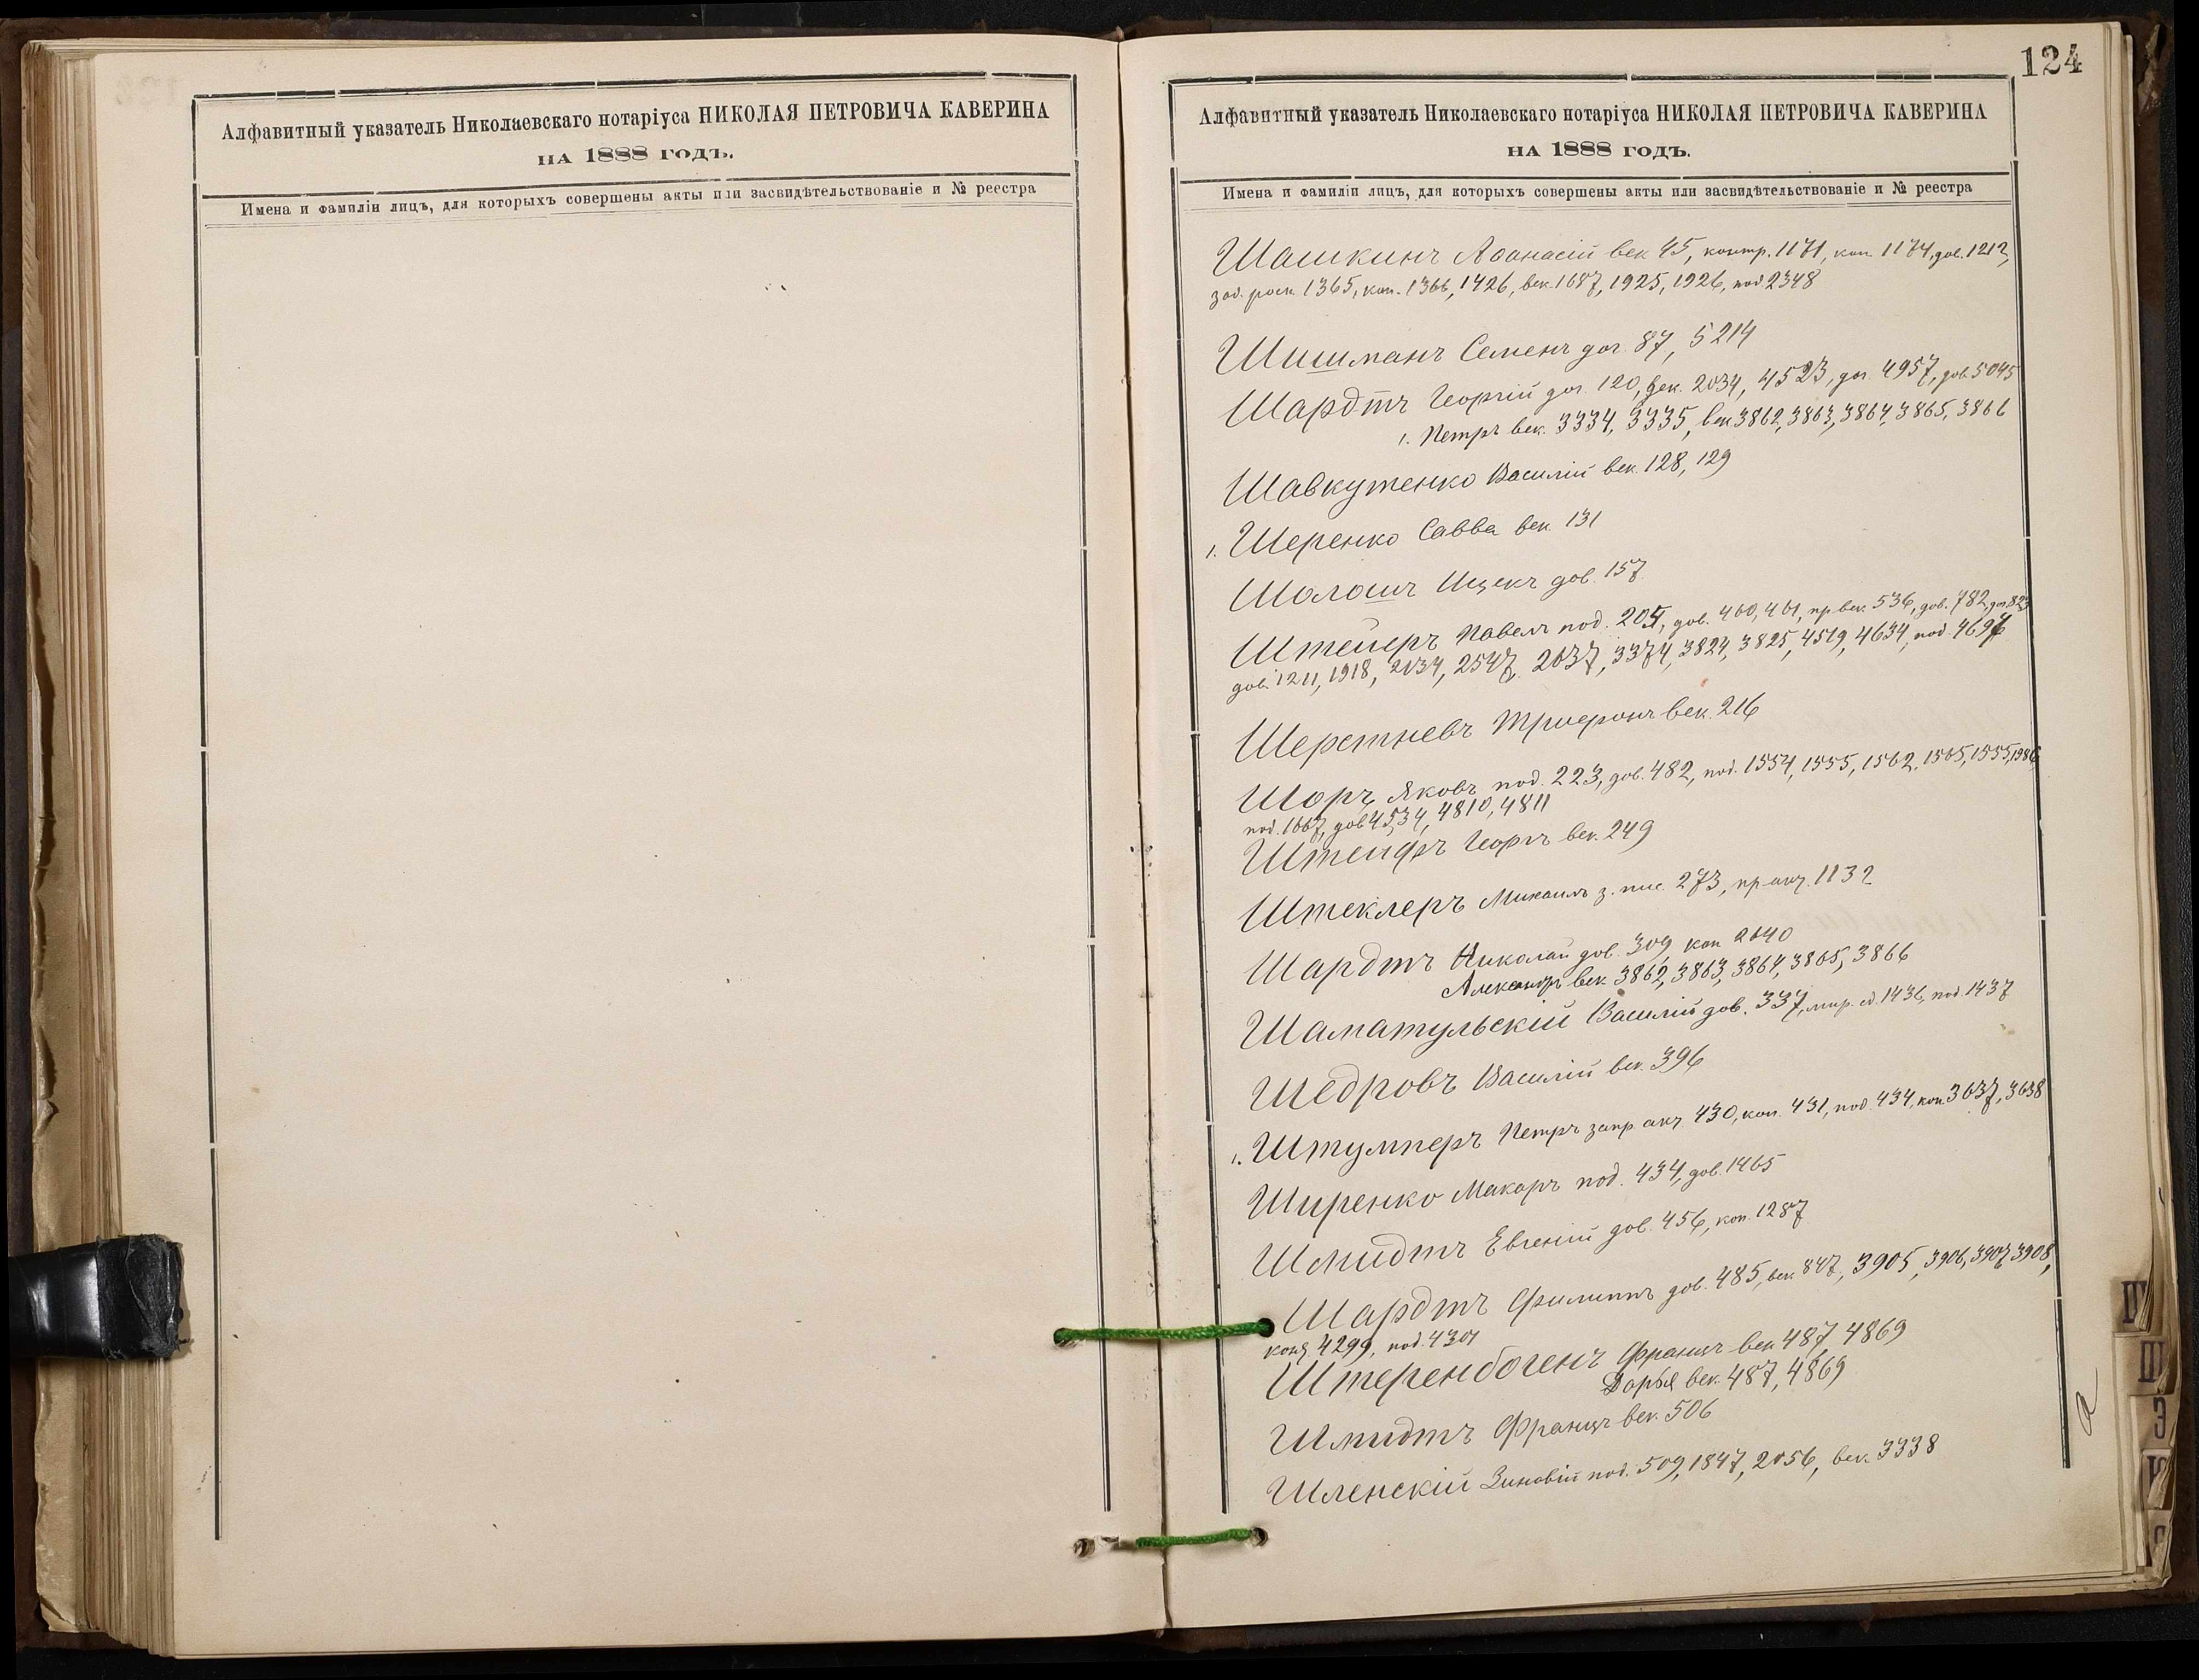 Алфавитный указатель Николаевскаго нотаріуса НИКОЛАЯ ПЕТРОВИЧА КАВЕРИНА
НА 1888 ГОДЪ.
Имена и фамиліи лицъ, для которыхъ совершены акты или засвидѣтельствованіе и № реестра
124
Алфавитный указатель Николаевскаго нотаріуса НИКОЛАЯ ПЕТРОВИЧА КАВЕРИНА
НА 1888 ГОДЪ.
Имена и фамиліи лицъ, для которыхъ совершены акты или засвидѣтельствованіе и № реестра
Шашкинъ Аѳанасій век 45, контр. 1171, коп. 1174, дов. 1212,
1365, коп. 1366, 1426, век. 1687, 1925, 1926, под 2348
Шишманъ Семенъ дог. 87, 5214
Шардтъ Георгій дог. 120, век. 2034, 4523, дог. 4957, дов. 5045
1. Петръ век. 3334, 3335, век 3862, 3863, 3864, 3865, 3866
Шавкутенко Василій век. 128, 129
1. Шеренко Савва век. 131
Шолошъ Ицекъ дов. 157
Штейеръ Павелъ под. 205, дов. 460, 461, пр. век. 536, дов. 782, дог 823
дов. 1211, 1918, 2034, 2547, 2637, 3374, 3824, 3825, 4519, 4634, под. 4697
Шерстневъ Трифонъ век. 216
Шоръ Яковъ под. 223, дов. 482, под. 1554, 1555, 1562, 1565, 1555, 1986,
под. 1667, дов 4534, 4810, 4811
Георгъ век. 249
Штеклеръ Михаилъ з. пис. 273, 1132
Шардтъ Николай дов. 309, коп 2640
Александръ век. 3862, 3863, 3864, 3865, 3866
Шаматульскій Василій дов. 337, мир. сд. 1436, под. 1437
Шедровъ Василій век. 396
1. Штумперъ Петръ запр акт 430, коп. 431, под. 434, коп. 3637, 3638
Ширенко Макаръ под. 434, дов. 1465
Шмидтъ Евгеній дов. 456, коп. 1287
Шардтъ Филиппъ дов. 485, век 847, 3905, 3906, 3907, 3908,
4299, под. 4301
Штеренбогенъ Францъ век 487, 4869
Дарья век. 487, 4869
Шмидтъ Францъ век. 506
Шленскій Зиновій под. 509, 1847, 2056, век. 3338
Ш
Э